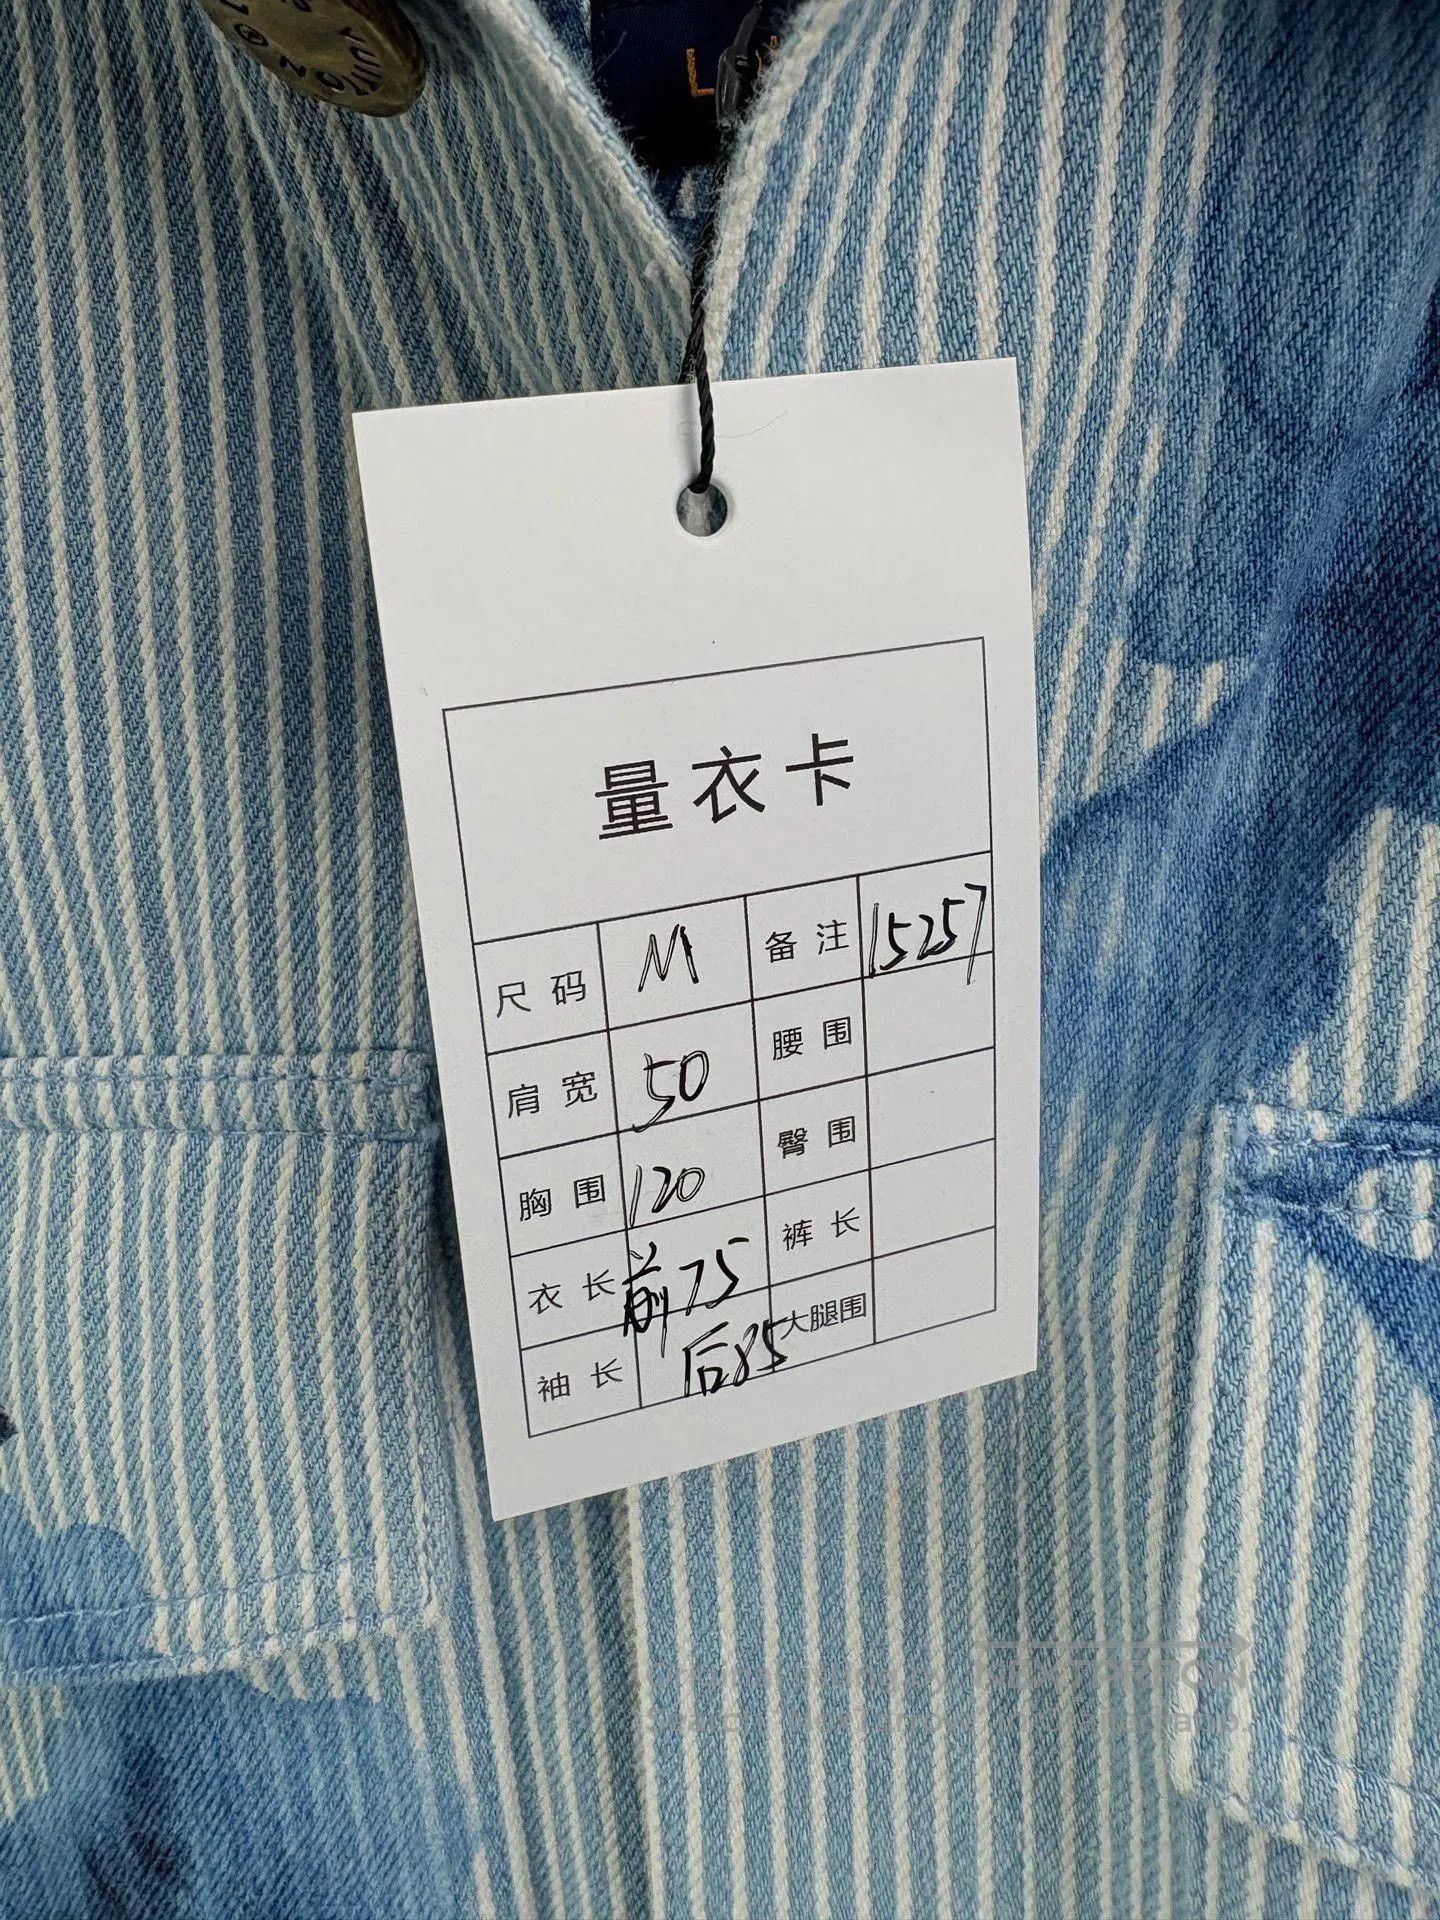 量衣卡
尺码 M 备注 15257
肩宽 50 腰围
胸围 120 臀围
衣长 前75 裤长
袖长 后85 大腿围
NEXTARROW